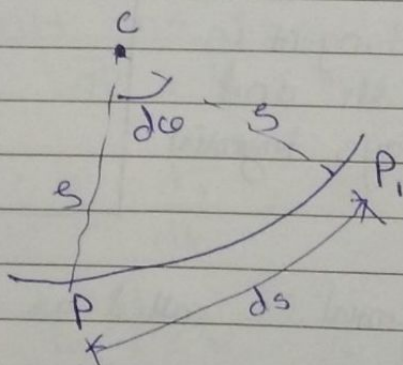 C
dφ
ρ
ρ
P₁
P
ds